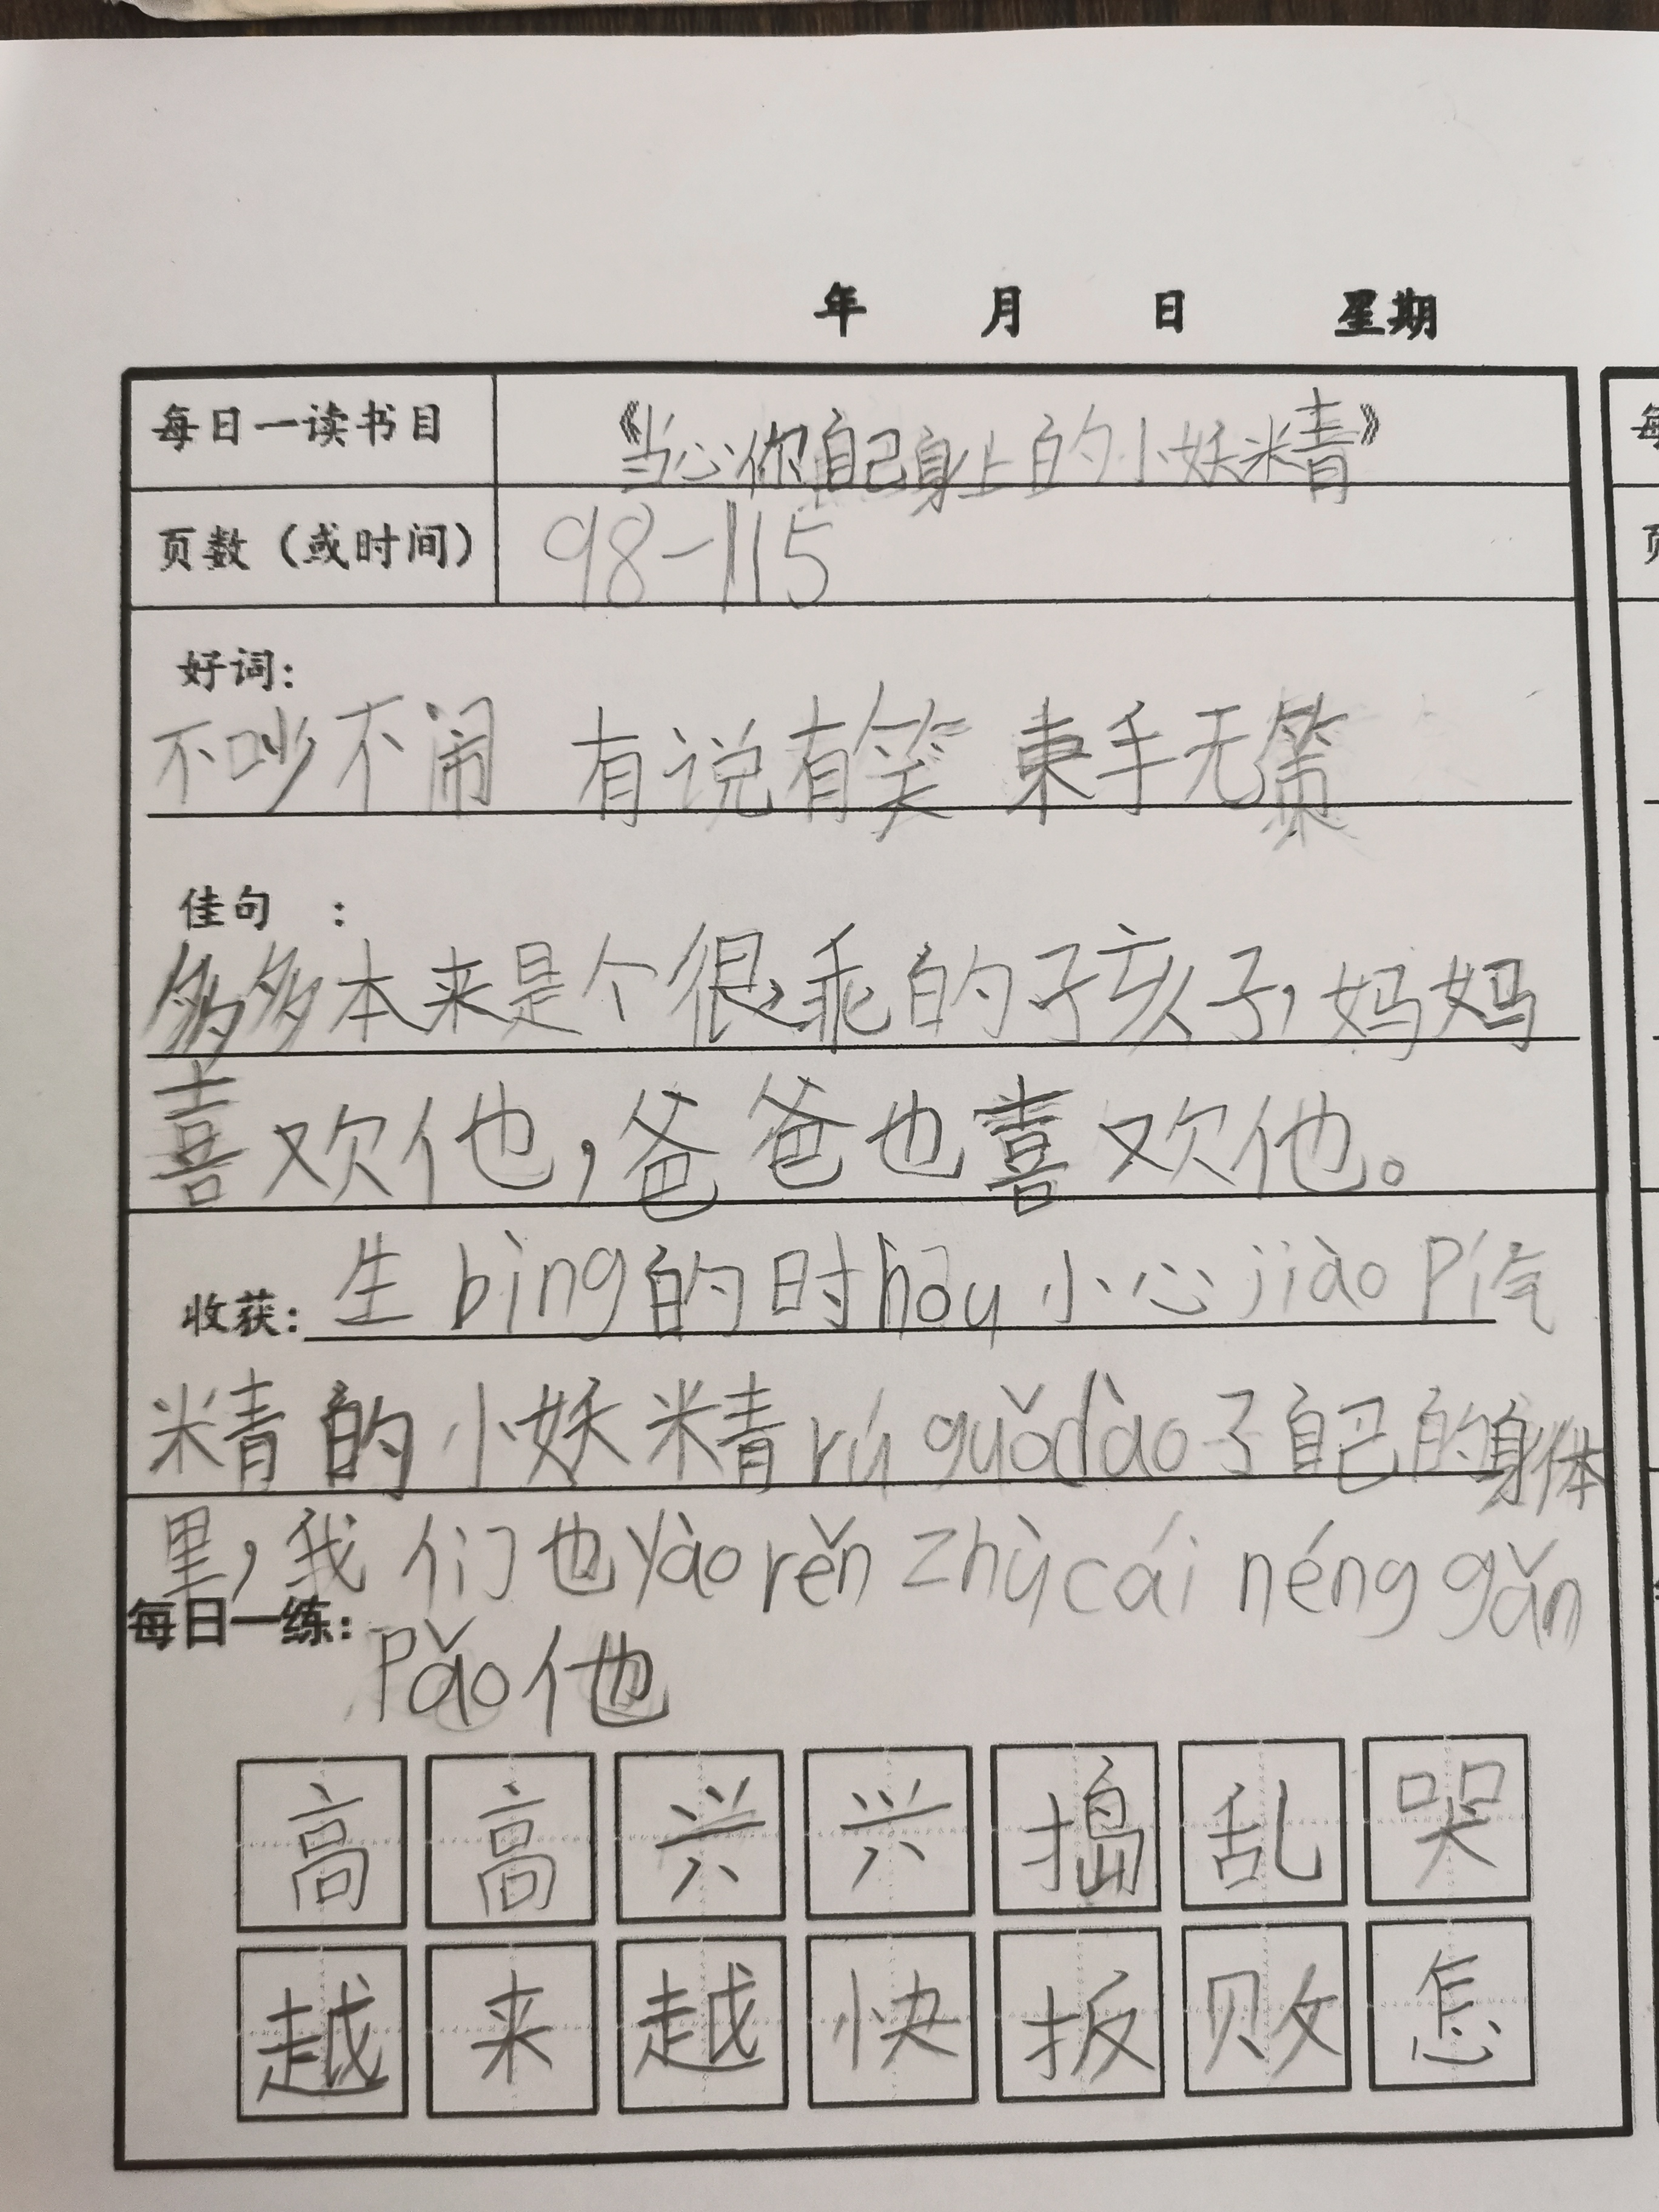 年 月 日 星期
每日一读书目 《当心你自己身上的小妖精》
页数（或时间） 98-115
好词：
不吵不闹 有说有笑 束手无策
佳句 ：
多多本来是个很乖的孑孩子，妈妈
喜欢他，爸爸也喜欢他。
收获：生bìng的时hòu小心jiào Pí气
精的小妖精rú guǒdào了自己的身体
里，我们也yào rěn zhù cái néng gǎn
Pǎo他
每日一练：
高 高 兴 兴 捣 乱 哭
越 来 越 快 扳 败 怎